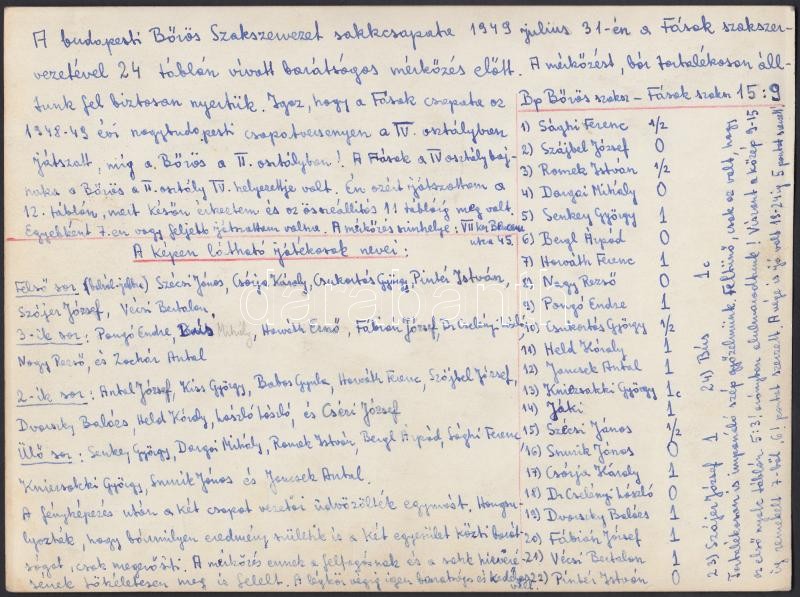 A budapesti Bőrös Szakszervezet sakkcsapata 1949 július 31-én a Fások szakszer-
vezetével 24 táblán vívott barátságos mérkőzés előtt. A mérkőzést, bár tartalékosan áll-
tunk fel biztosan nyertük. Igaz, hogy a Fások csapata az
1948-49 évi nagybudapesti csapatversenyen a IV. osztályban
játszott, míg a Bőrös a II. osztályban! A Fások a IV osztály baj-
noka a Bőrös a II. osztály IV. helyezettje volt. Én azért játszottam a
12. táblán, mert késõn érkeztem és az összeállítás 11 tábláig meg volt.
Egyébként 7.-en vagy feljebb játszottam volna. A mérkőzés színhelye: VII ker.
utca 45.
A képen látható játékosok nevei:
Felső sor (balról-jobbra) Szécsi János, Csórja Károly, Csukortás György, Pintér István,
Szójer József, Vécsi Bertalan,
3-ik sor: Pongó Endre, Mihály, Horváth Ernő, Fábián József, Dr Cselényi László,
Nagy Rezső, és Zachár Antal
2-ik sor: Antal József, Kiss György, Babos Gyula, Horváth Ferenc, Szójbel József,
Dvorszky Balázs, Held Károly, László László, és Cséri József
Ülő sor: Senkey György, Dargai Mihály, Romek István, Bergl Árpád, Sághi Ferenc
Kniezsatki György, Smurik János és Jancsek Antal.
A fényképezés után a két csapat vezetői üdvözölték egymást. Hangsu-
lyozták, hogy bármilyen eredmény születik is a két egyesület közti barát
ságot, csak megerősíti. A mérkőzés ennek a felfogásnak és a sakk hírnevé-
sének tökéletesen meg is felelt. A légkör végig igen barátságos és kedélyes
volt.
Bp Bőrös szaksz - Fások szaksz 15:9
1) Sághi Ferenc 1/2
2) Szójbel József 0
3) Romek István 1/2
4) Dargai Mihály 0
5) Senkey György 1
6) Bergl Árpád 0
7) Horváth Ferenc 1
8) Nagy Rezső 0
9) Pongó Endre 1
10) Csukortás György 1/2
11) Held Károly 1
12) Jancsek Antal 1
13) Kniezsatki György 1c
14) Jáki 1
15) Szécsi János 1/2
16) Smurik János 0
17) Csórja Károly 1
18) Dr Cselényi László 0
19) Dvorszky Balázs 1
20) Fábián József 1
21) Vécsi Bertalan 1
22) Pintér István 0
23) Szójer József 1 24) Bús 1c
Tartalékosan is imponáló szép győzelmünk. Feltűnő, csak az volt, hogy
az első nyolc táblán 5:3! arányban alulmaradtunk! Viszont a közép 9-15
ig remekelt 7-ből, 6! pontot szerzett. A vége is jó volt 19-24 ig 5 pontot szerzett!
darabanth